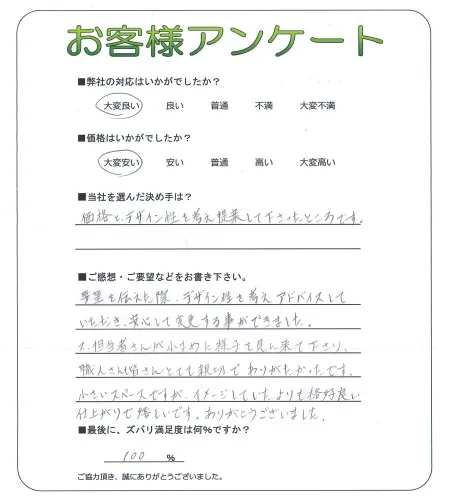 お客様アンケート
■弊社の対応はいかがでしたか？
大変良い 良い 普通 不満 大変不満
■価格はいかがでしたか？
大変安い 安い 普通 高い 大変高い
■当社を選んだ決め手は？
価格と、デザイン性を考え提案して下さったところです。
■ご感想・ご要望などをお書き下さい。
要望を伝えた際、デザイン性を考えアドバイスして
いただき、安心して変更する事ができました。
又、担当者さんが小まめに様子を見に来て下さり、
職人さん皆さんとても親切でありがたかったです。
小さいスペースですが、イメージしていたよりも格好良い
仕上がりで嬉しいです。ありがとうございました。
■最後に、ズバリ満足度は何%ですか？
100 %
ご協力頂き、誠にありがとうございました。